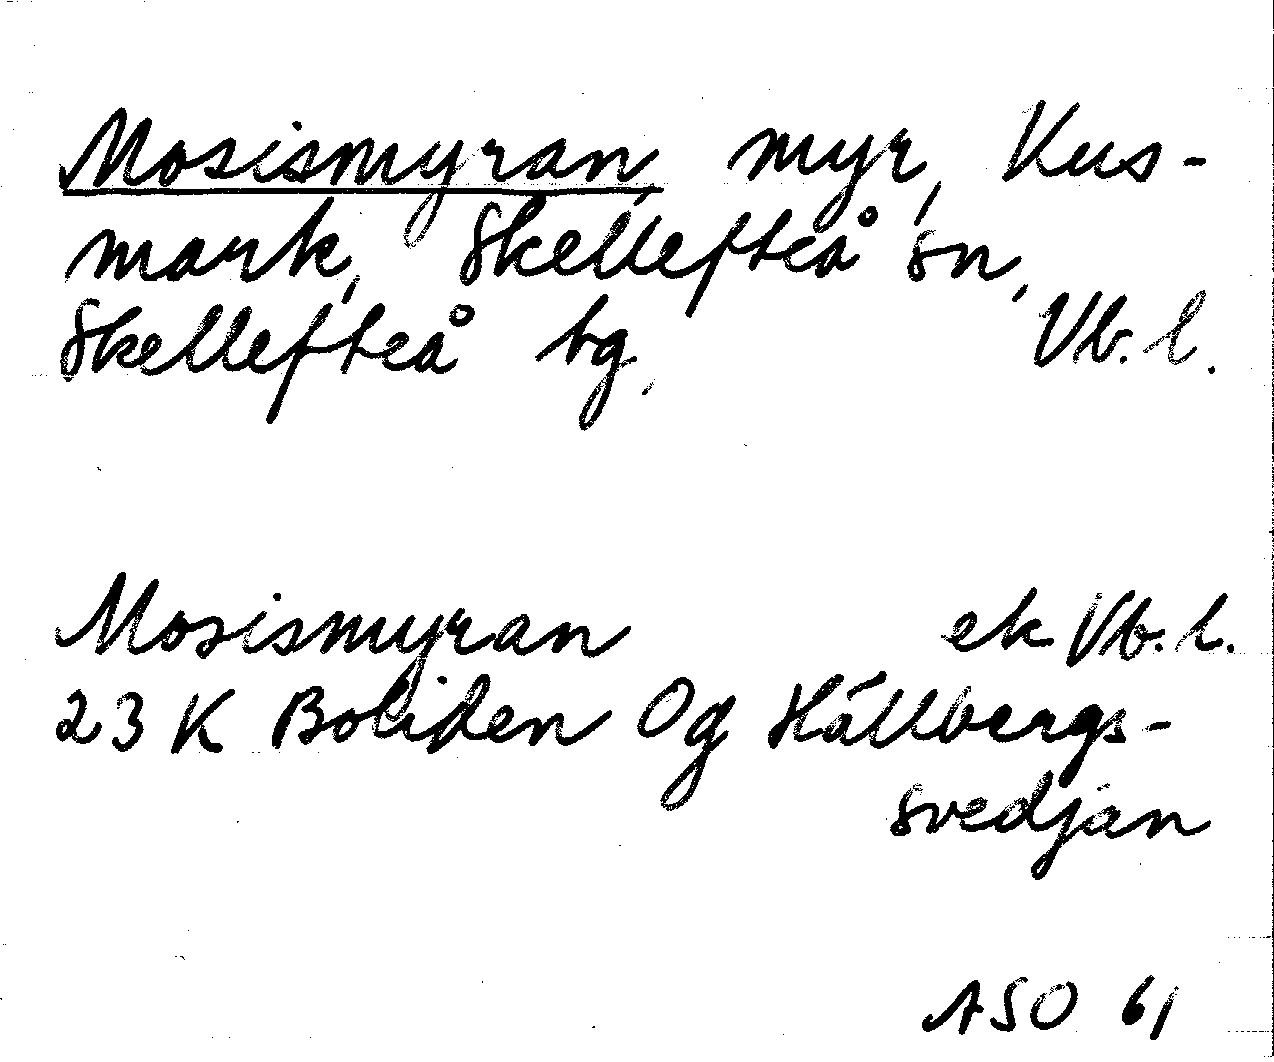 Mosismyran myr, Kus-
mark, Skellefteå sn,
Skellefteå tg. Vb. l.
Mosismyran ek Vb. l.
23 K Boliden Og Hållbergs-
svedjan
ASO 61